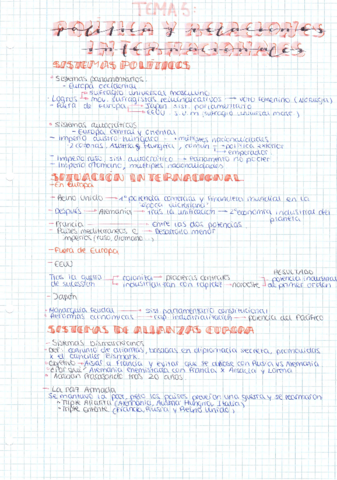 TEMA 5:
POLÍTICA Y RELACIONES
INTERNACIONALES
SISTEMAS POLÍTICOS
- Sistemas parlamentarios:
- Europa occidental
sufragio universal masculino
Logros → mov. sufragistas reivindicativos → voto femenino (Noruega)
- Fuera de Europa: Japón sist. parlamentario
EEUU
- Sistemas autocráticos
- Europa central y oriental
- Imperio austro-húngaro → múltiples nacionalidades
2 coronas, Austria y Hungría, común: → política exterior
→ emperador
- Imperio ruso: sist. autocrático → parlamento no poder
- Imperio otomano, múltiples nacionalidades
SITUACIÓN INTERNACIONAL
- En Europa
- Reino Unido → 1ª potencia comercial y financiera mundial en la
época victoriana
- después → Alemania → tras la unificación → 2ª economía industrial del
planeta
- Francia → entre las dos potencias
- Países mediterráneos e → desarrollo menor
imperios (ruso, otomano)
- Fuera de Europa
- EEUU
Tras la guerra → economía → procesos
de secesión industrializan con rapidez → potencia industrial
de primer orden
- Japón
Monarquía feudal → sist. parlamentario constitucional
Reformas económicas → rev. industrialización → potencia del Pacífico
SISTEMAS DE ALIANZAS EUROPA
- Sistemas bismarckianos
- Def: conjunto de alianzas, basadas en diplomacia secreta, promovidas
x el canciller Bismarck
- objetivo → Aislar a Francia y evitar que se aliase con Rusia vs Alemania
- ¿Por qué? Alemania enemistada con Francia x Alsacia y Lorena
- tras 20 años
- La paz Armada
Se mantuvo la paz, pero los países preveían una guerra y se reforzaron
- Triple Alianza (Alemania, Austria Hungría, Italia)
- Triple Entente (Francia, Rusia y Reino Unido)